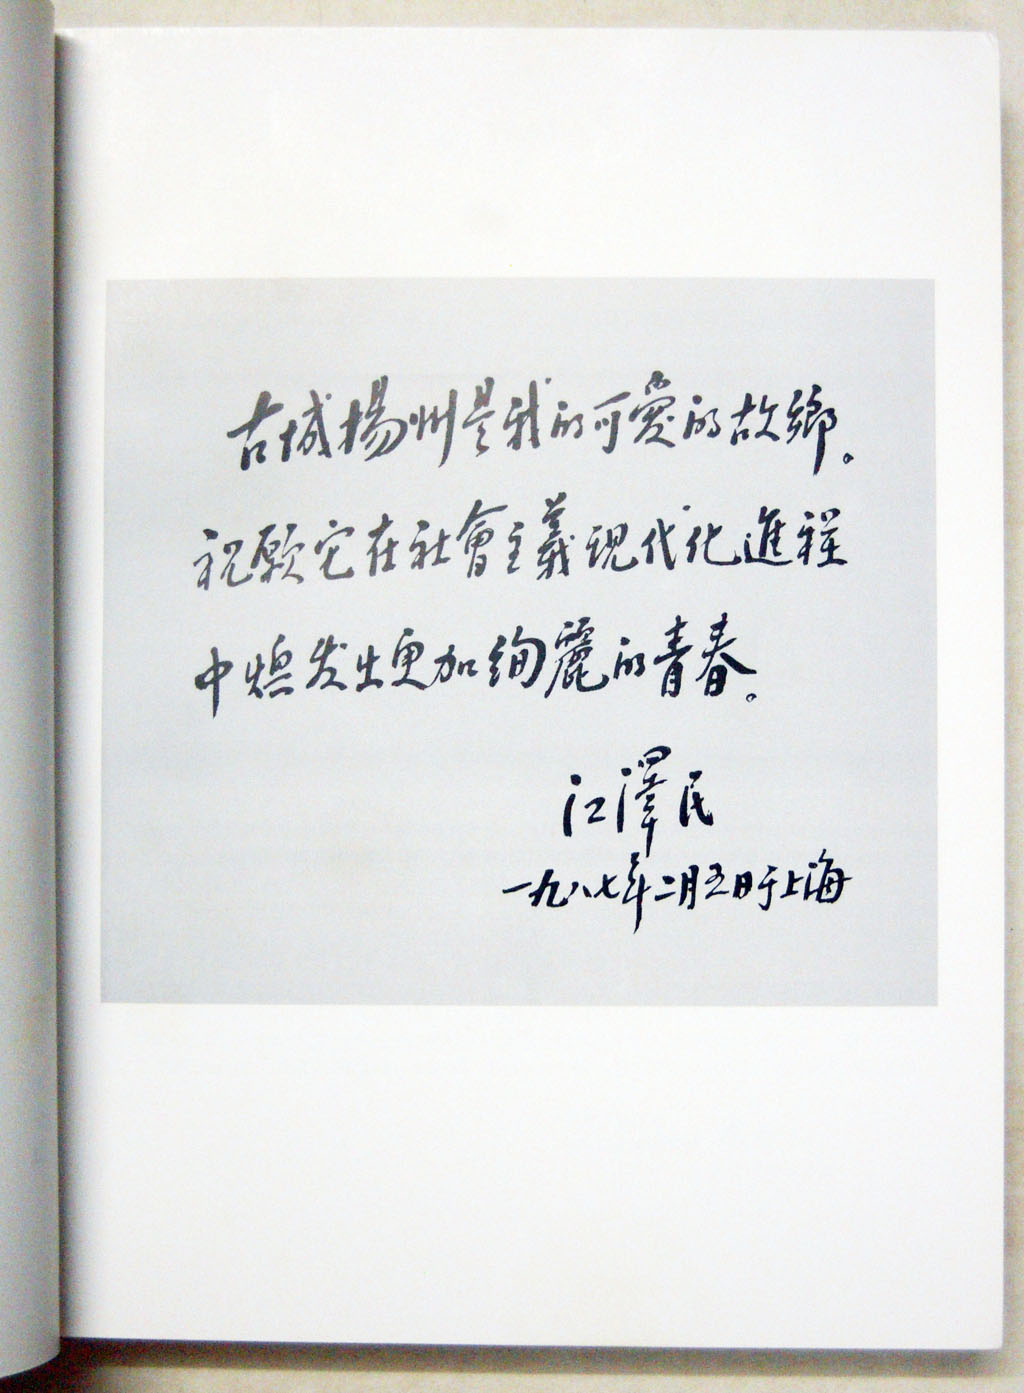 古城揚州是我的可愛的故鄉。
祝願它在社會主義現代化進程
中煥发出更加絢麗的青春。
江澤民
一九八七年二月五日于上海